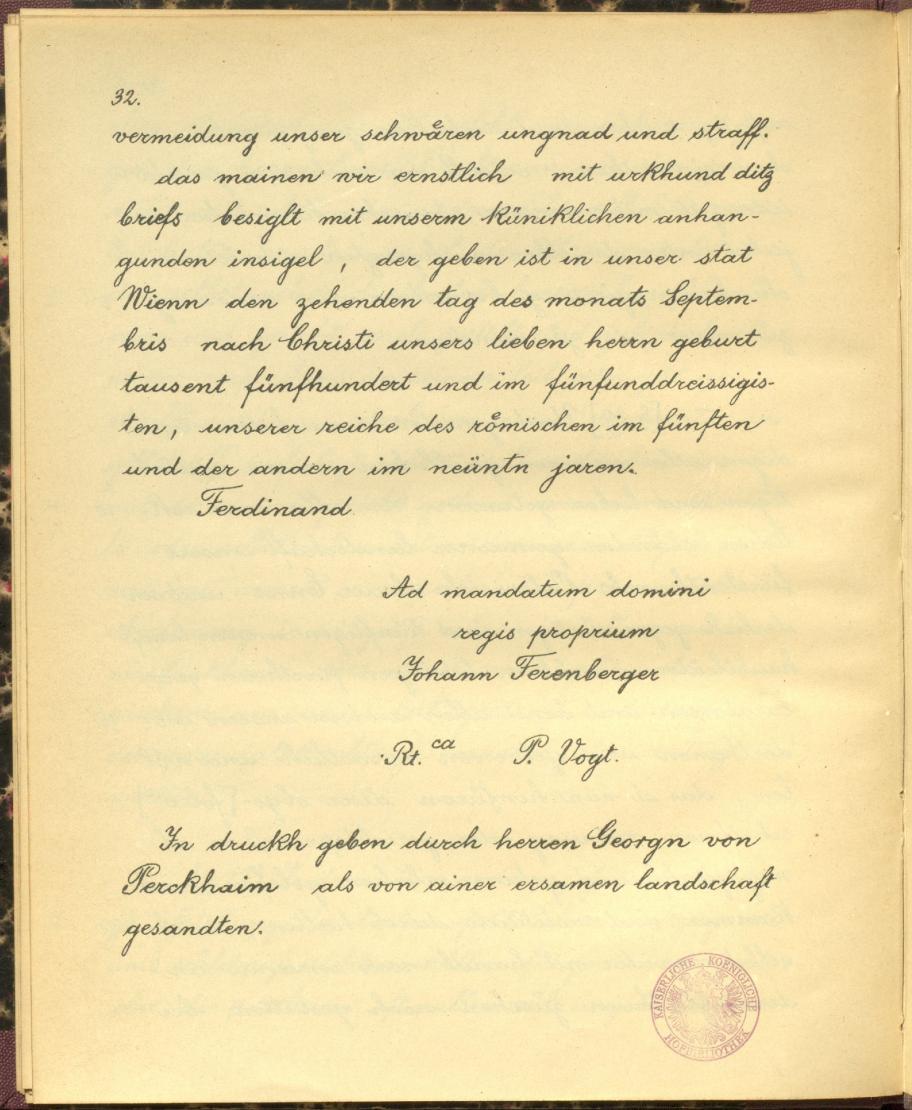 32.
vermeidung unser schwåren ungnad und straff.
das mainen wir ernstlich mit urkhund ditz
briefs besiglt mit unserm küniklichen anhan-
gunden insigel, der geben ist in unser stat
Wienn den zehenden tag des monats Septem-
bris nach Christi unsers lieben herrn geburt
tausent fünfhundert und im fünfunddreissigis-
ten, unserer reiche des römischen im fünften
und der andern im neüntn jaren.
Ferdinand
Ad mandatum domini
regis proprium
Johann Ferenberger
Rt. ca P. Vogt.
In druckh geben durch herren Georgn von
Perckhaim als von ainer ersamen landschaft
gesandten.
KAISERLICHE KOENIGLICHE
HOFBIBLIOTHEK